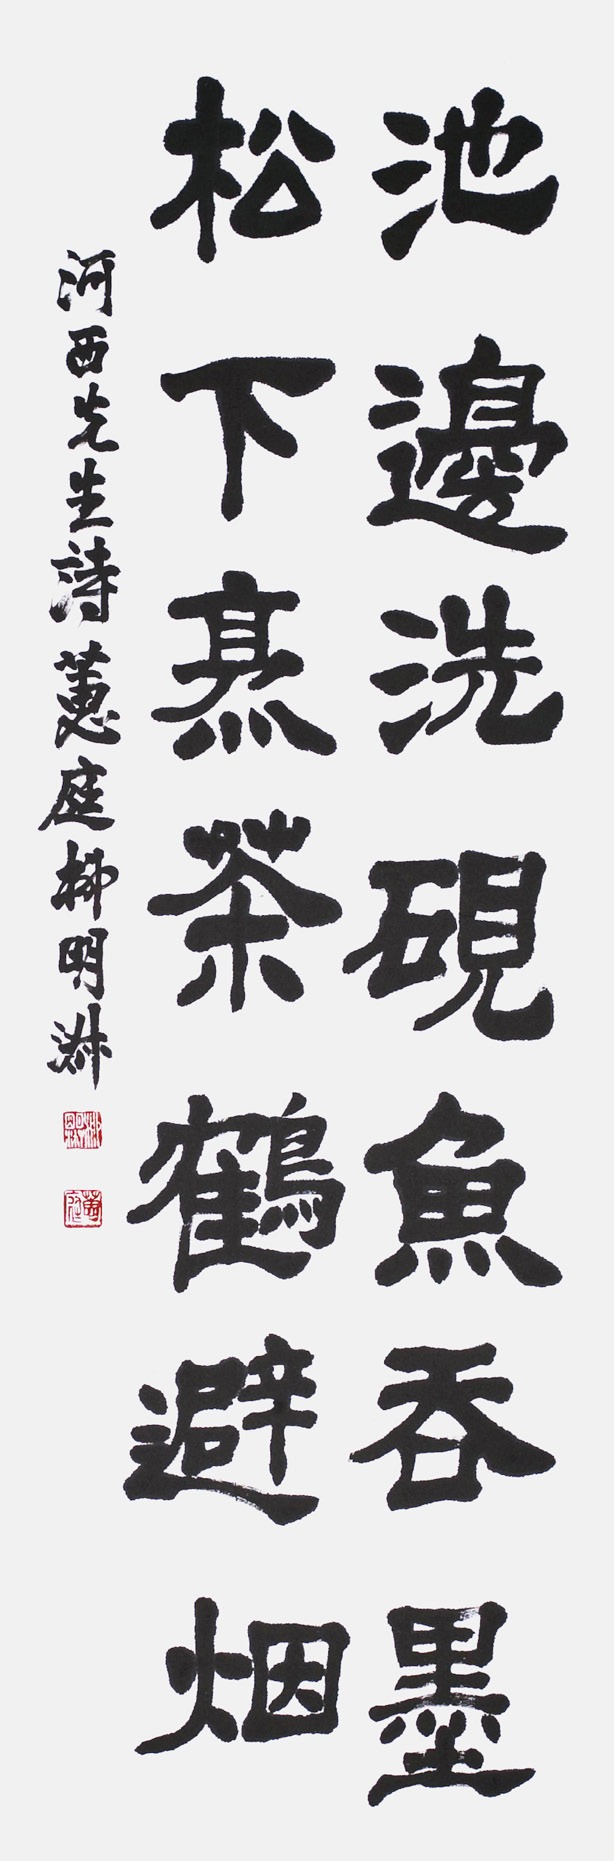 池邊洗硯魚吞墨
松下烹茶鶴避烟
河西先生詩 蕙庭 柳明淑